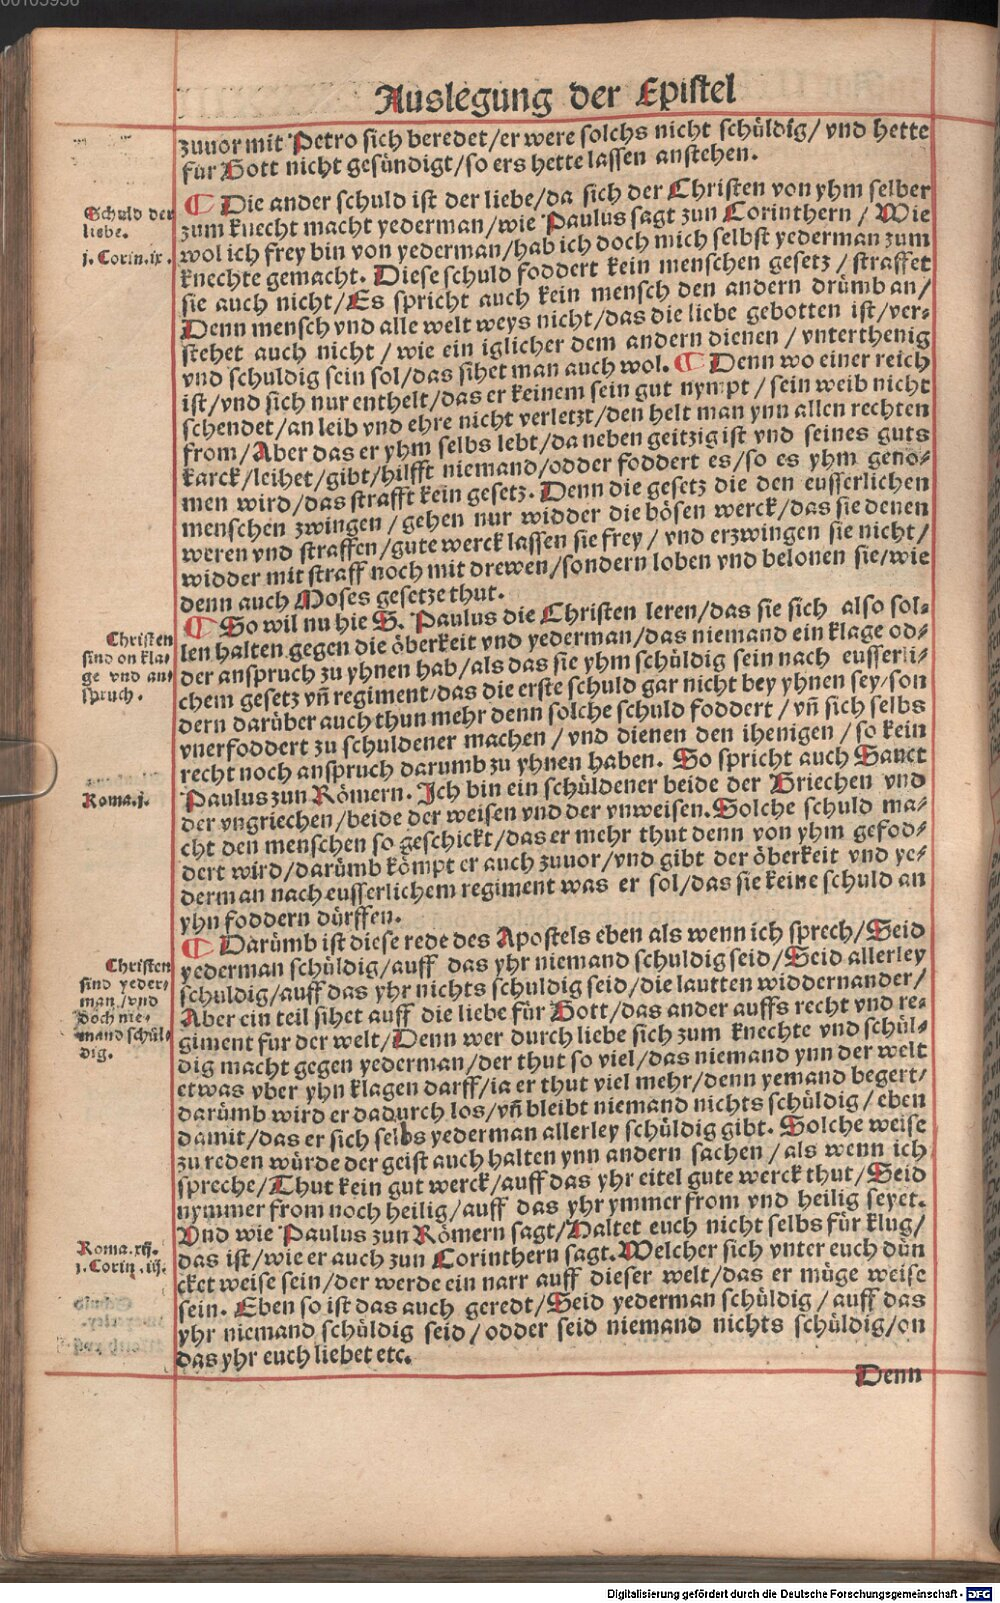 00103936
Auslegung der Epistel
zuuor mit Petro sich beredet/er were solchs nicht schüldig/ vnd hette
für Gott nicht gesündigt/so ers hette lassen anstehen.
¶ Die ander schuld ist der liebe/da sich der Christen von yhm selber
zum knecht macht yederman/wie Paulus sagt zun Corinthern/ Wie
wol ich frey bin von yederman/hab ich doch mich selbst yederman zum
knechte gemacht. Diese schuld foddert kein menschen gesetz/ straffet
sie auch nicht/Es spricht auch kein mensch den andern drümb an/
Denn mensch vnd alle welt weys nicht/das die liebe gebotten ist/ver-
stehet auch nicht/ wie ein iglicher dem andern dienen/ vnterthenig
vnd schuldig sein sol/das sihet man auch wol. ¶ Denn wo einer reich
ist/vnd sich nur enthelt/das er keinem sein gut nympt/ sein weib nicht
schendet/an leib vnd ehre nicht verletzt/den helt man ynn allen rechten
from/Aber das er yhm selbs lebt/da neben geitzig ist vnd seines guts
karck/leihet/gibt/hilfft niemand/odder foddert es/so es yhm geno-
men wird/das strafft kein gesetz. Denn die gesetz die den eusserlichen
menschen zwingen/gehen nur widder die bösen werck/das sie denen
weren vnd straffen/gute werck lassen sie frey/ vnd erzwingen sie nicht/
widder mit straff noch mit drewen/sondern loben vnd belonen sie/wie
denn auch Moses gesetze thut.
¶ So wil nu hie S. Paulus die Christen leren/das sie sich also sol-
len halten gegen die öberkeit vnd yederman/das niemand ein klage od-
der anspruch zu yhnen hab/als das sie yhm schüldig sein nach eusserli-
chem gesetz vñ regiment/das die erste schuld gar nicht bey yhnen sey/son
dern darüber auch thun mehr denn solche schuld foddert/ vñ sich selbs
vnerfoddert zu schuldener machen/ vnd dienen den ihenigen/ so kein
recht noch anspruch darumb zu yhnen haben. So spricht auch Sanct
Paulus zun Römern. Ich bin ein schüldener beide der Griechen vnd
der vngriechen/beide der weisen vnd der vnweisen. Solche schuld ma-
cht den menschen so geschickt/das er mehr thut denn von yhm gefod-
dert wird/darümb kömpt er auch zuuor/vnd gibt der öberkeit vnd ye-
derman nach eusserlichem regiment was er sol/das sie keine schuld an
yhn foddern dürffen.
¶ Darümb ist diese rede des Apostels eben als wenn ich sprech/Seid
yederman schüldig/auff das yhr niemand schuldig seid/Seid allerley
schuldig/auff das yhr nichts schuldig seid/die lautten widdernander/
Aber ein teil sihet auff die liebe für Gott/das ander auffs recht vnd re-
giment für der welt/Denn wer durch liebe sich zum knechte vnd schül-
dig macht gegen yederman/der thut so viel/das niemand ynn der welt
etwas vber yhn klagen darff/ia er thut viel mehr/denn yemand begert/
darümb wird er dadurch los/vñ bleibt niemand nichts schüldig/ eben
damit/das er sich selbs yederman allerley schüldig gibt. Solche weise
zu reden würde der geist auch halten ynn andern sachen/ als wenn ich
spreche/Thut kein gut werck/auff das yhr eitel gute werck thut/Seid
nymmer from noch heilig/auff das yhr ymmer from vnd heilig seyet.
Vnd wie Paulus zun Römern sagt/Haltet euch nicht selbs für klug/
das ist/wie er auch zun Corinthern sagt. Welcher sich vnter euch dün
cket weise sein/der werde ein narr auff dieser welt/das er müge weise
sein. Eben so ist das auch geredt/Seid yederman schüldig/ auff das
yhr niemand schüldig seid/odder seid niemand nichts schüldig/on
das yhr euch liebet etc.
Denn
Schuld der
liebe.
j. Corin.ix.
Christen
sind on kla-
ge vnd an-
spruch.
Roma.j.
Christen
sind yeder-
man/vnd
doch nie-
mand schül-
dig.
Roma.xij.
j. Corin.iij.
Digitalisierung gefördert durch die Deutsche Forschungsgemeinschaft - DFG